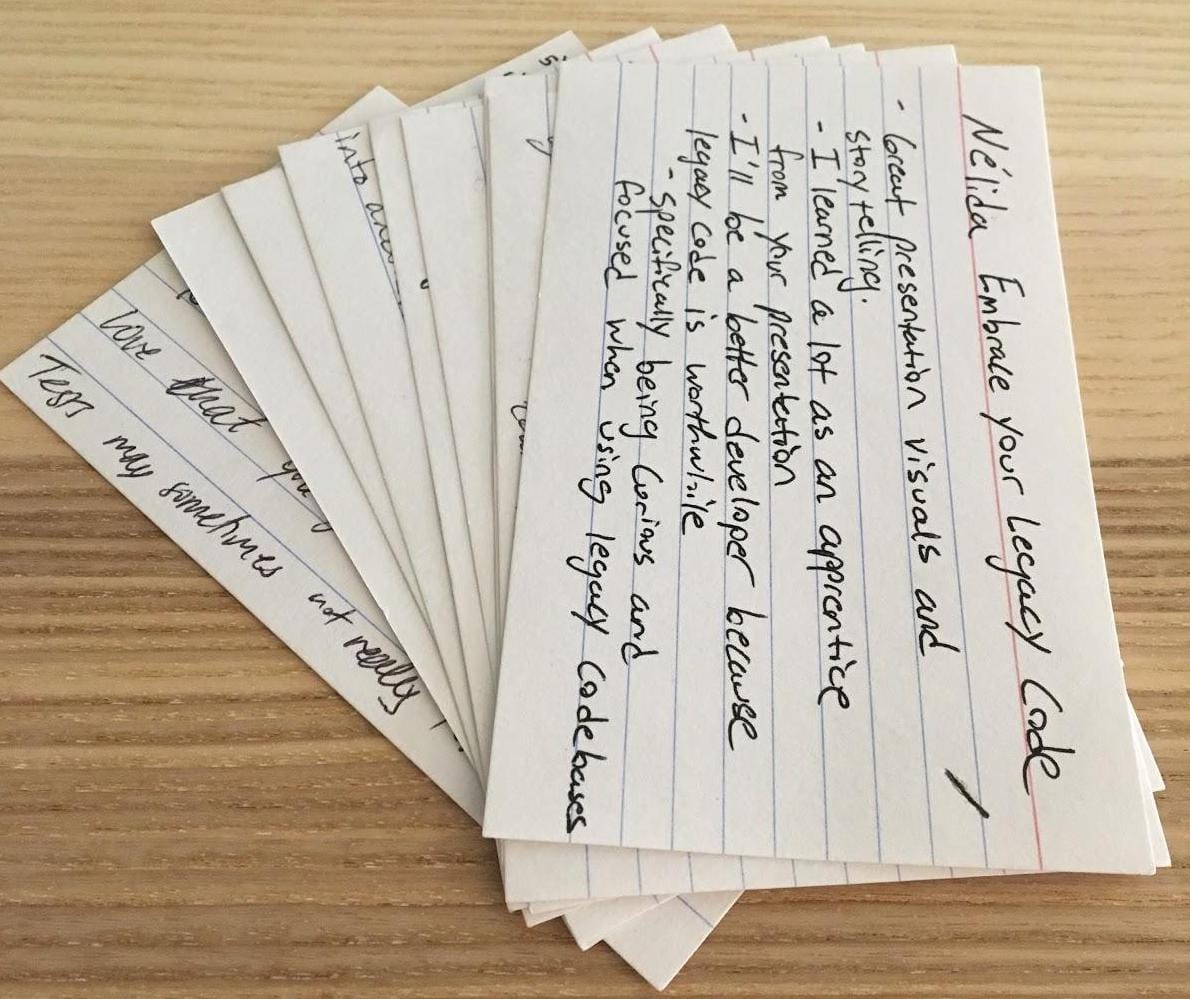 Nélida Embrace your Legacy Code
- Great presentation visuals and
storytelling.
- I learned a lot as an apprentice
from your presentation
- I'll be a better developer because
legacy code is worthwhile
- specifically being curious and
focused when using legacy codebases
into
love that
Tests may sometimes not really